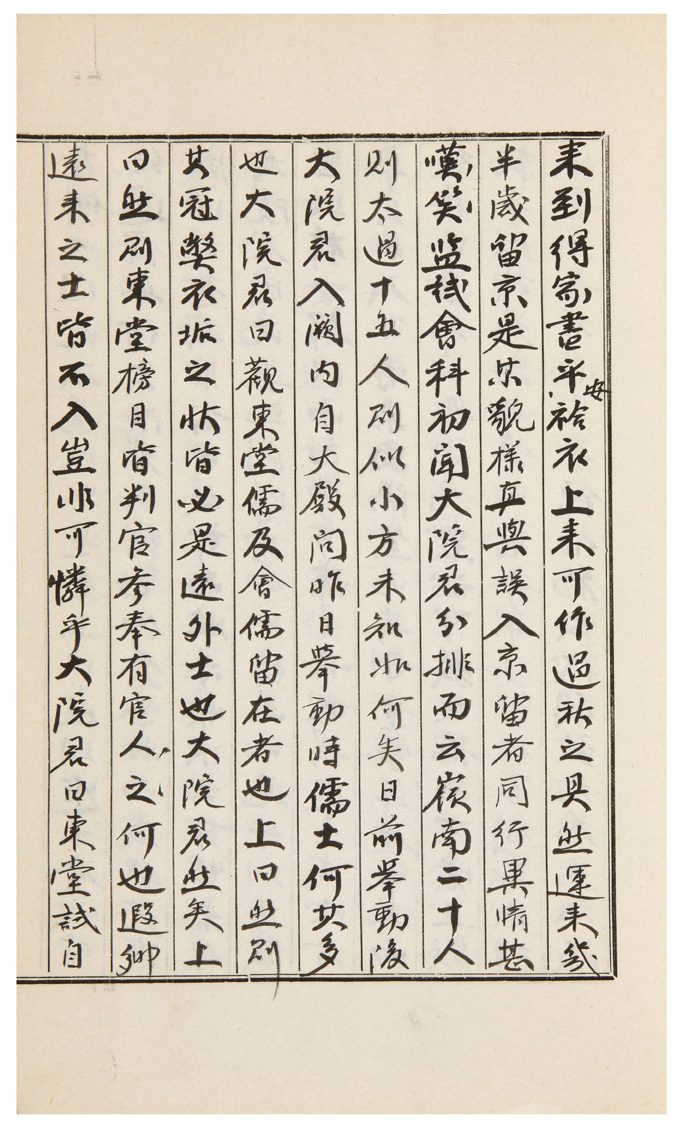 来到得家書平安袷衣上来可作過秋之具然運来幾
半歲留京是甚貌樣真與誤入京留者同行異情甚
嘆〻笑〻監試會科初聞大院君分排而云嶺南二十人
則太過十五人則似小方未知如何矣日前擧動後
大院君入闕內自大殿問昨日擧動時儒士何其多
也大院君曰觀東堂儒及會儒留在者也上曰然則
其冠弊衣垢之狀皆必是遠外士也大院君然矣上
曰然則東堂榜目皆判官參奉有官人〻之〻何也遐鄕
遠来之士皆不入豈非可憐乎大院君曰東堂試自